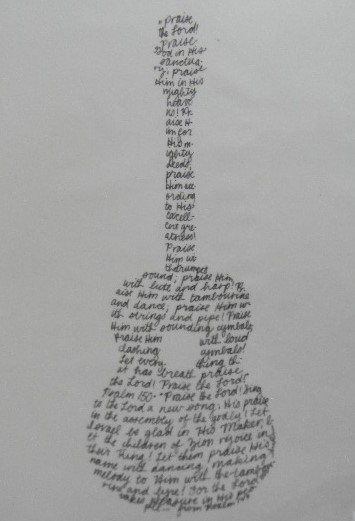 "Praise
the Lord!
Praise
God in His
sanctua
ry; praise
Him in His
mighty
heave
ns! Pr
aise H
im for
His m-
ighty
deeds;
praise
Him acc
ording
to His
excell-
ent gre-
atness!
Praise
Him wi
thtrumpet
sound; praise Him
with lute and harp! Pr
aise Him with tambourine
and dance; praise Him w
ith strings and pipe! Praise
Him with sounding cymbals
Praise Him with loud
clashing cymbals!
Let every thing th-
at has breath praise
the Lord! Praise the Lord!
Psalm 150 - "Praise the Lord! Sing
to the Lord a new song, His praise
in the assembly of the godly! Let
Israel be glad in His Maker; le
t the children of Zion rejoice in
their King! Let them praise His
name with dancing, making
melody to Him with the tambou
rine and lyre! For the Lord
takes pleasure in His peo
ple- from Psalm 149